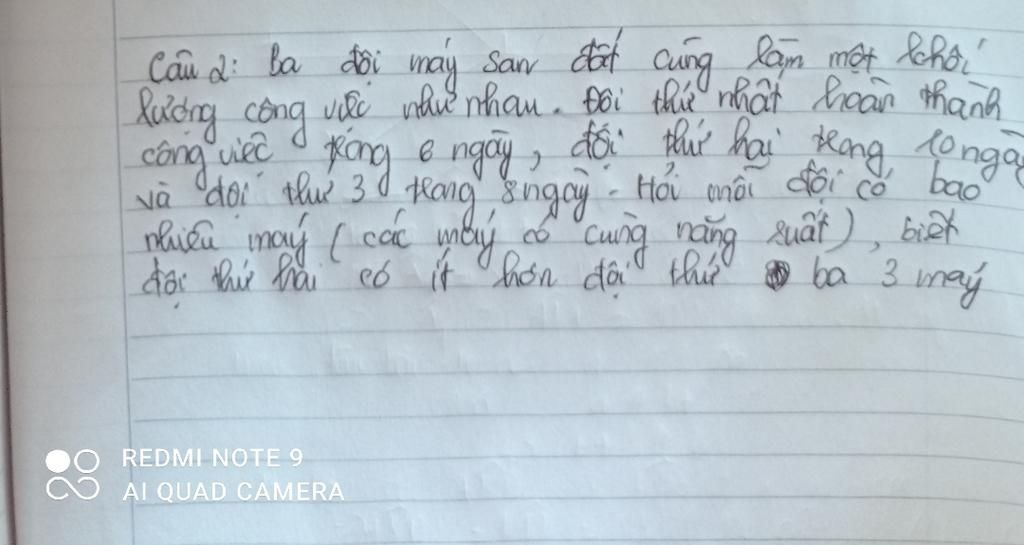 Câu 2: Ba đội máy san đất cùng làm một khối
lượng công việc như nhau. Đội thứ nhất hoàn thành
công việc trong 6 ngày, đội thứ hai trong 10 ngày
và đội thứ 3 trong 8 ngày. Hỏi mỗi đội có bao
nhiêu máy (các máy có cùng năng suất), biết
đội thứ hai có ít hơn đội thứ ba 3 máy
REDMI NOTE 9
AI QUAD CAMERA